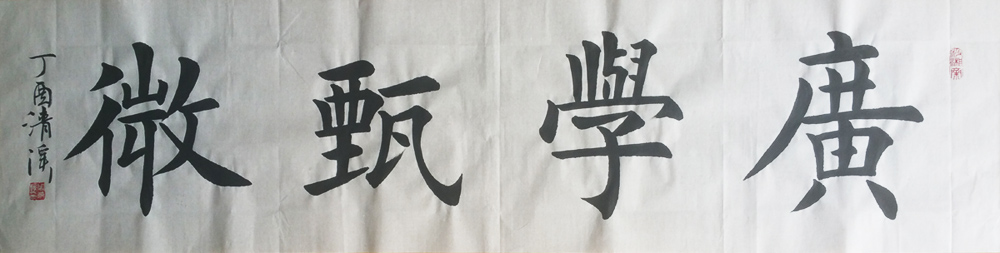 廣學甄微
丁酉清溪